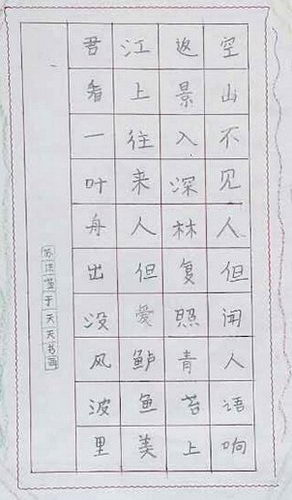 空山不见人但闻人语响
返景入深林复照青苔上
江上往来人但爱鲈鱼美
君看一叶舟出没风波里
于天天书画